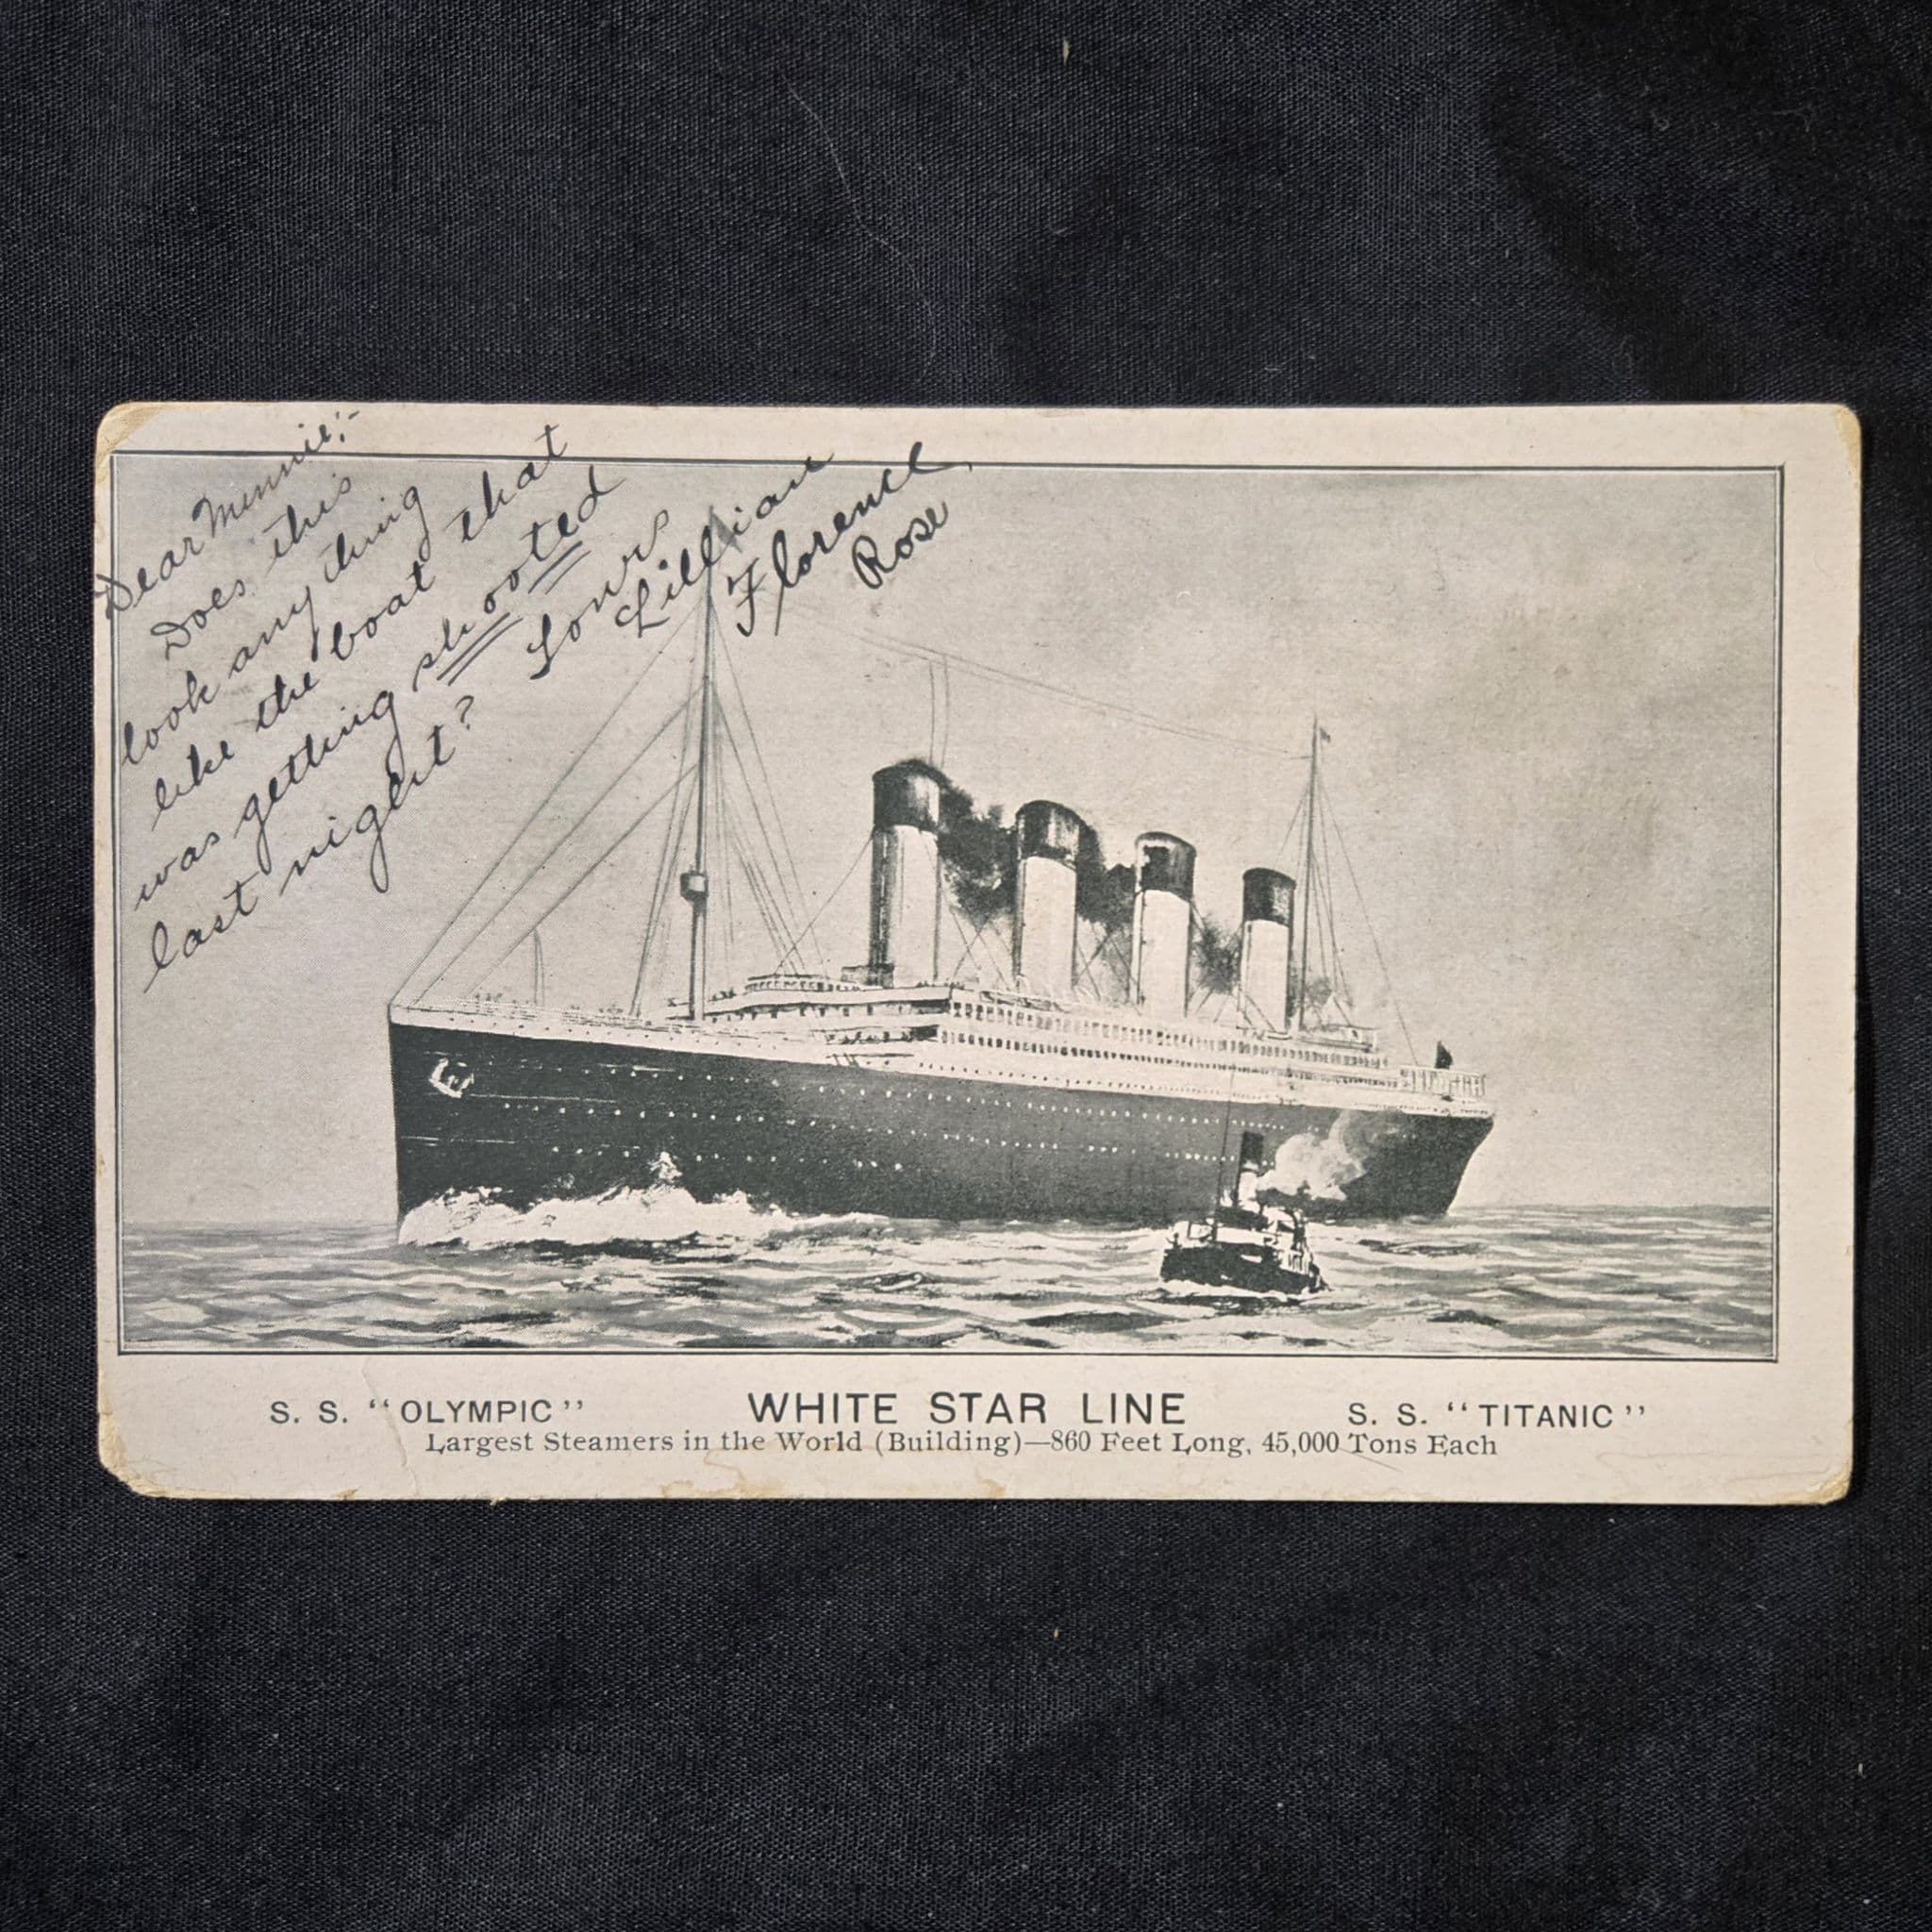 Dear Minnie:-
Does this
look any thing
like the boat that
was getting shooted
last night?
Yours
Lillian
Florence
Rose
S. S. “OLYMPIC” WHITE STAR LINE S. S. “TITANIC”
Largest Steamers in the World (Building)—860 Feet Long, 45,000 Tons Each